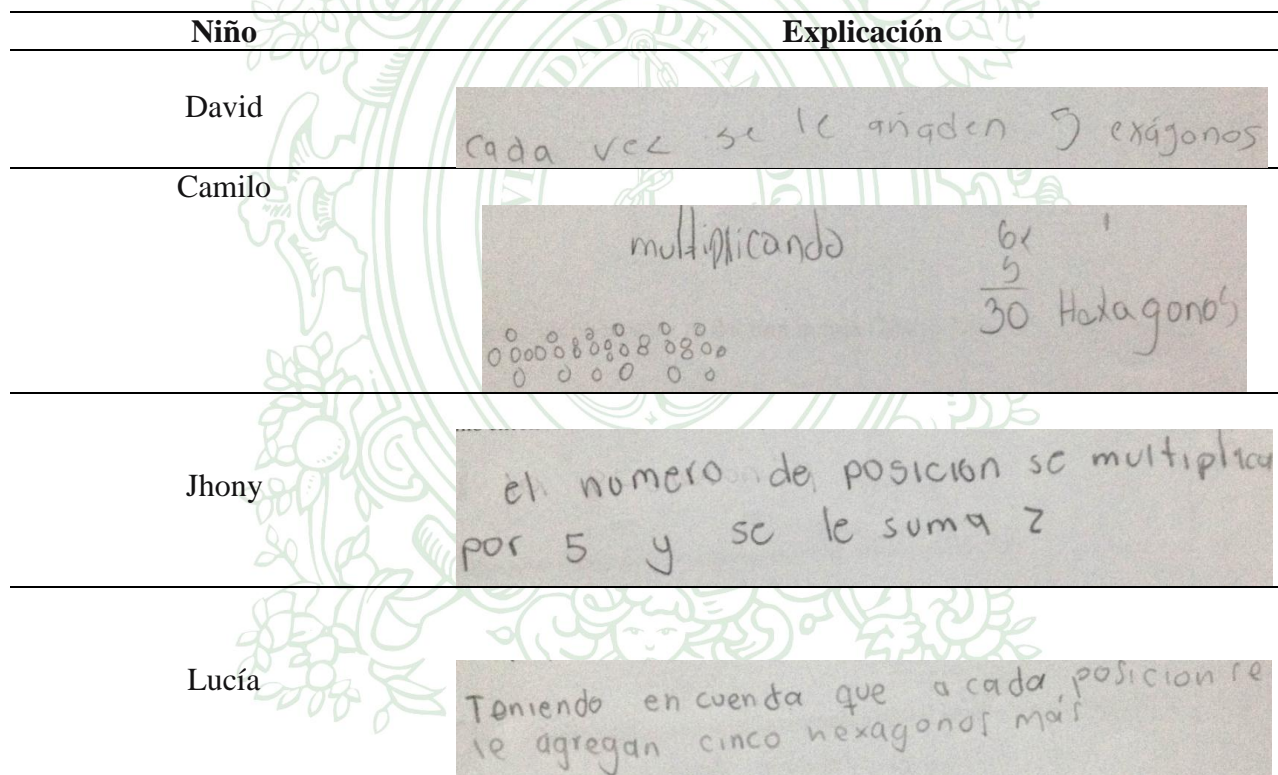 Niño Explicación
David
cada vez se le añaden 5 exágonos
Camilo
multiplicando 6x
5
30 Hexagonos
Jhony
el numero de posición se multiplica
por 5 y se le suma 2
Lucía
Teniendo en cuenta que a cada posicion se
le agregan cinco hexagonos más